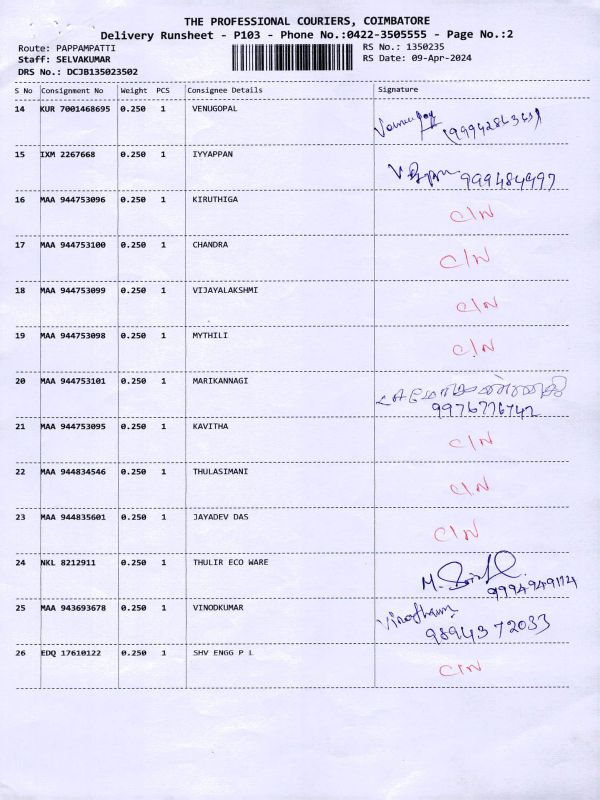 THE PROFESSIONAL COURIERS, COIMBATORE
Delivery Runsheet - P103 - Phone No.:0422-3505555 - Page No.:2
Route: PAPPAMPATTI
RS No.: 1350235
Staff: SELVAKUMAR
RS Date: 09-Apr-2024
DRS No.: DCJB135023502
S No Consignment No Weight PCS Consignee Details Signature
14 KUR 7001468695 0.250 1 VENUGOPAL
15 IXM 2267668 0.250 1 IYYAPPAN
16 MAA 944753096 0.250 1 KIRUTHIGA C/N
17 MAA 944753100 0.250 1 CHANDRA C/N
18 MAA 944753099 0.250 1 VIJAYALAKSHMI C/N
19 MAA 944753098 0.250 1 MYTHILI C/N
20 MAA 944753101 0.250 1 MARIKANNAGI
9976776742
21 MAA 944753095 0.250 1 KAVITHA C/N
22 MAA 944834546 0.250 1 THULASIMANI C/N
23 MAA 944835601 0.250 1 JAYADEV DAS C/N
24 NKL 8212911 0.250 1 THULIR ECO WARE
25 MAA 943693678 0.250 1 VINODKUMAR
9894372033
26 EDQ 17610122 0.250 1 SHV ENGG P L C/N